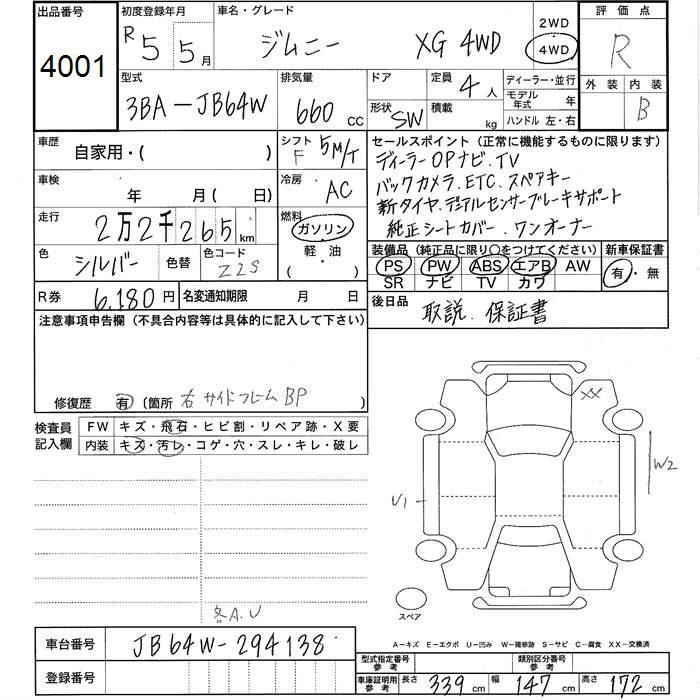 出品番号 初度登録年月 車名・グレード 2WD 評価点
4001 R5 5月 ジムニー XG 4WD 4WD R
型式 排気量 ドア 定員 ディーラー・並行 外装 内装
3BA-JB64W 660 CC 4人 モデル年式 年 B
形状 SW 積載 kg ハンドル 左・右
車歴 自家用・( ) シフト F 5M/T
セールスポイント (正常に機能するものに限ります)
ディーラーOPナビ.TV
車検 年 月( 日) 冷房 AC
バックカメラ.ETC.スペアキー
新タイヤ.デュアルセンサーブレーキサポート
走行 2万2千265 km 燃料 ガソリン
純正シートカバー.ワンオーナー
軽・油
( )
色 シルバー 色替 色コード Z2S
装備品 (純正品に限り〇をつけてください) 新車保証書
PS PW ABS エアB AW 有・無
SR ナビ TV カワ
R券 6,180円 名変通知期限 月 日
後日品 取説.保証書
注意事項申告欄 (不具合内容等は具体的に記入して下さい)
修復歴 有 (箇所 右サイドフレームBP
検査員記入欄 FW キズ・飛石・ヒビ割・リペア跡・X要
内装 キズ・汚レ・コゲ・穴・スレ・キレ・破レ
XX
W2
U1
スペア
各A.U
A-キズ E-エクボ U-凹み W-補修跡 S-サビ C-腐食 XX-交換済
車台番号 JB64W-294138
登録番号
型式指定番号参考 類別区分番号参考
車庫証明用参考 長さ 339 cm 幅 147 cm 高さ 172 cm